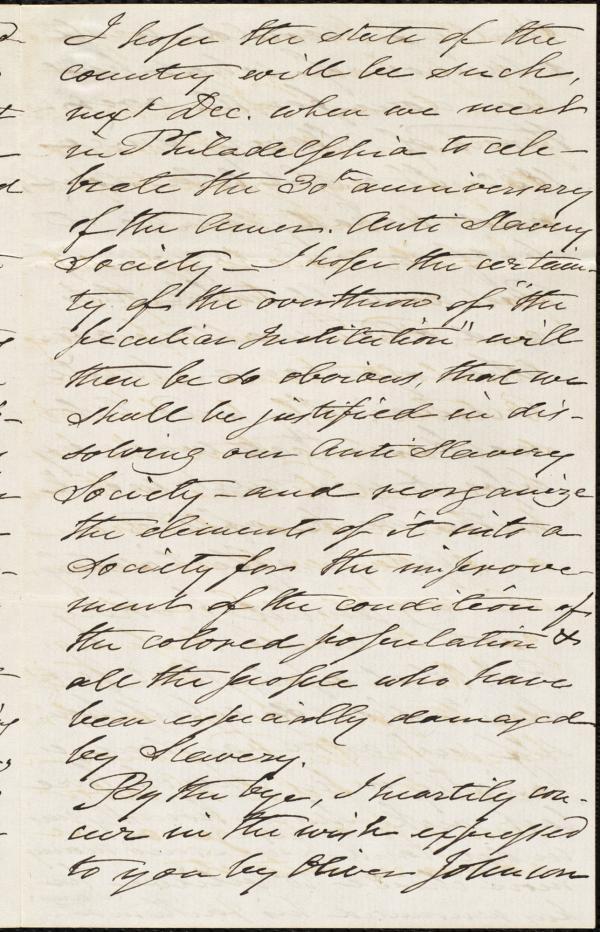 I hope the state of the
country will be such,
next Dec. when we meet
in Philadelphia to cele-
brate the 30th anniversary
of the Amer. Anti Slavery
Society - I hope the certain-
ty of the overthrow of "the
peculiar Institution" will
then be so obvious, that we
shall be justified in dis-
solving our Anti Slavery
Society - and reorganize
the elements of it into a
Society for the improve-
ment of the condition of
the colored population &
all the people who have
been especially damaged
by Slavery.
By the bye, I heartily con-
cur in the wish expressed
to you by Oliver Johnson